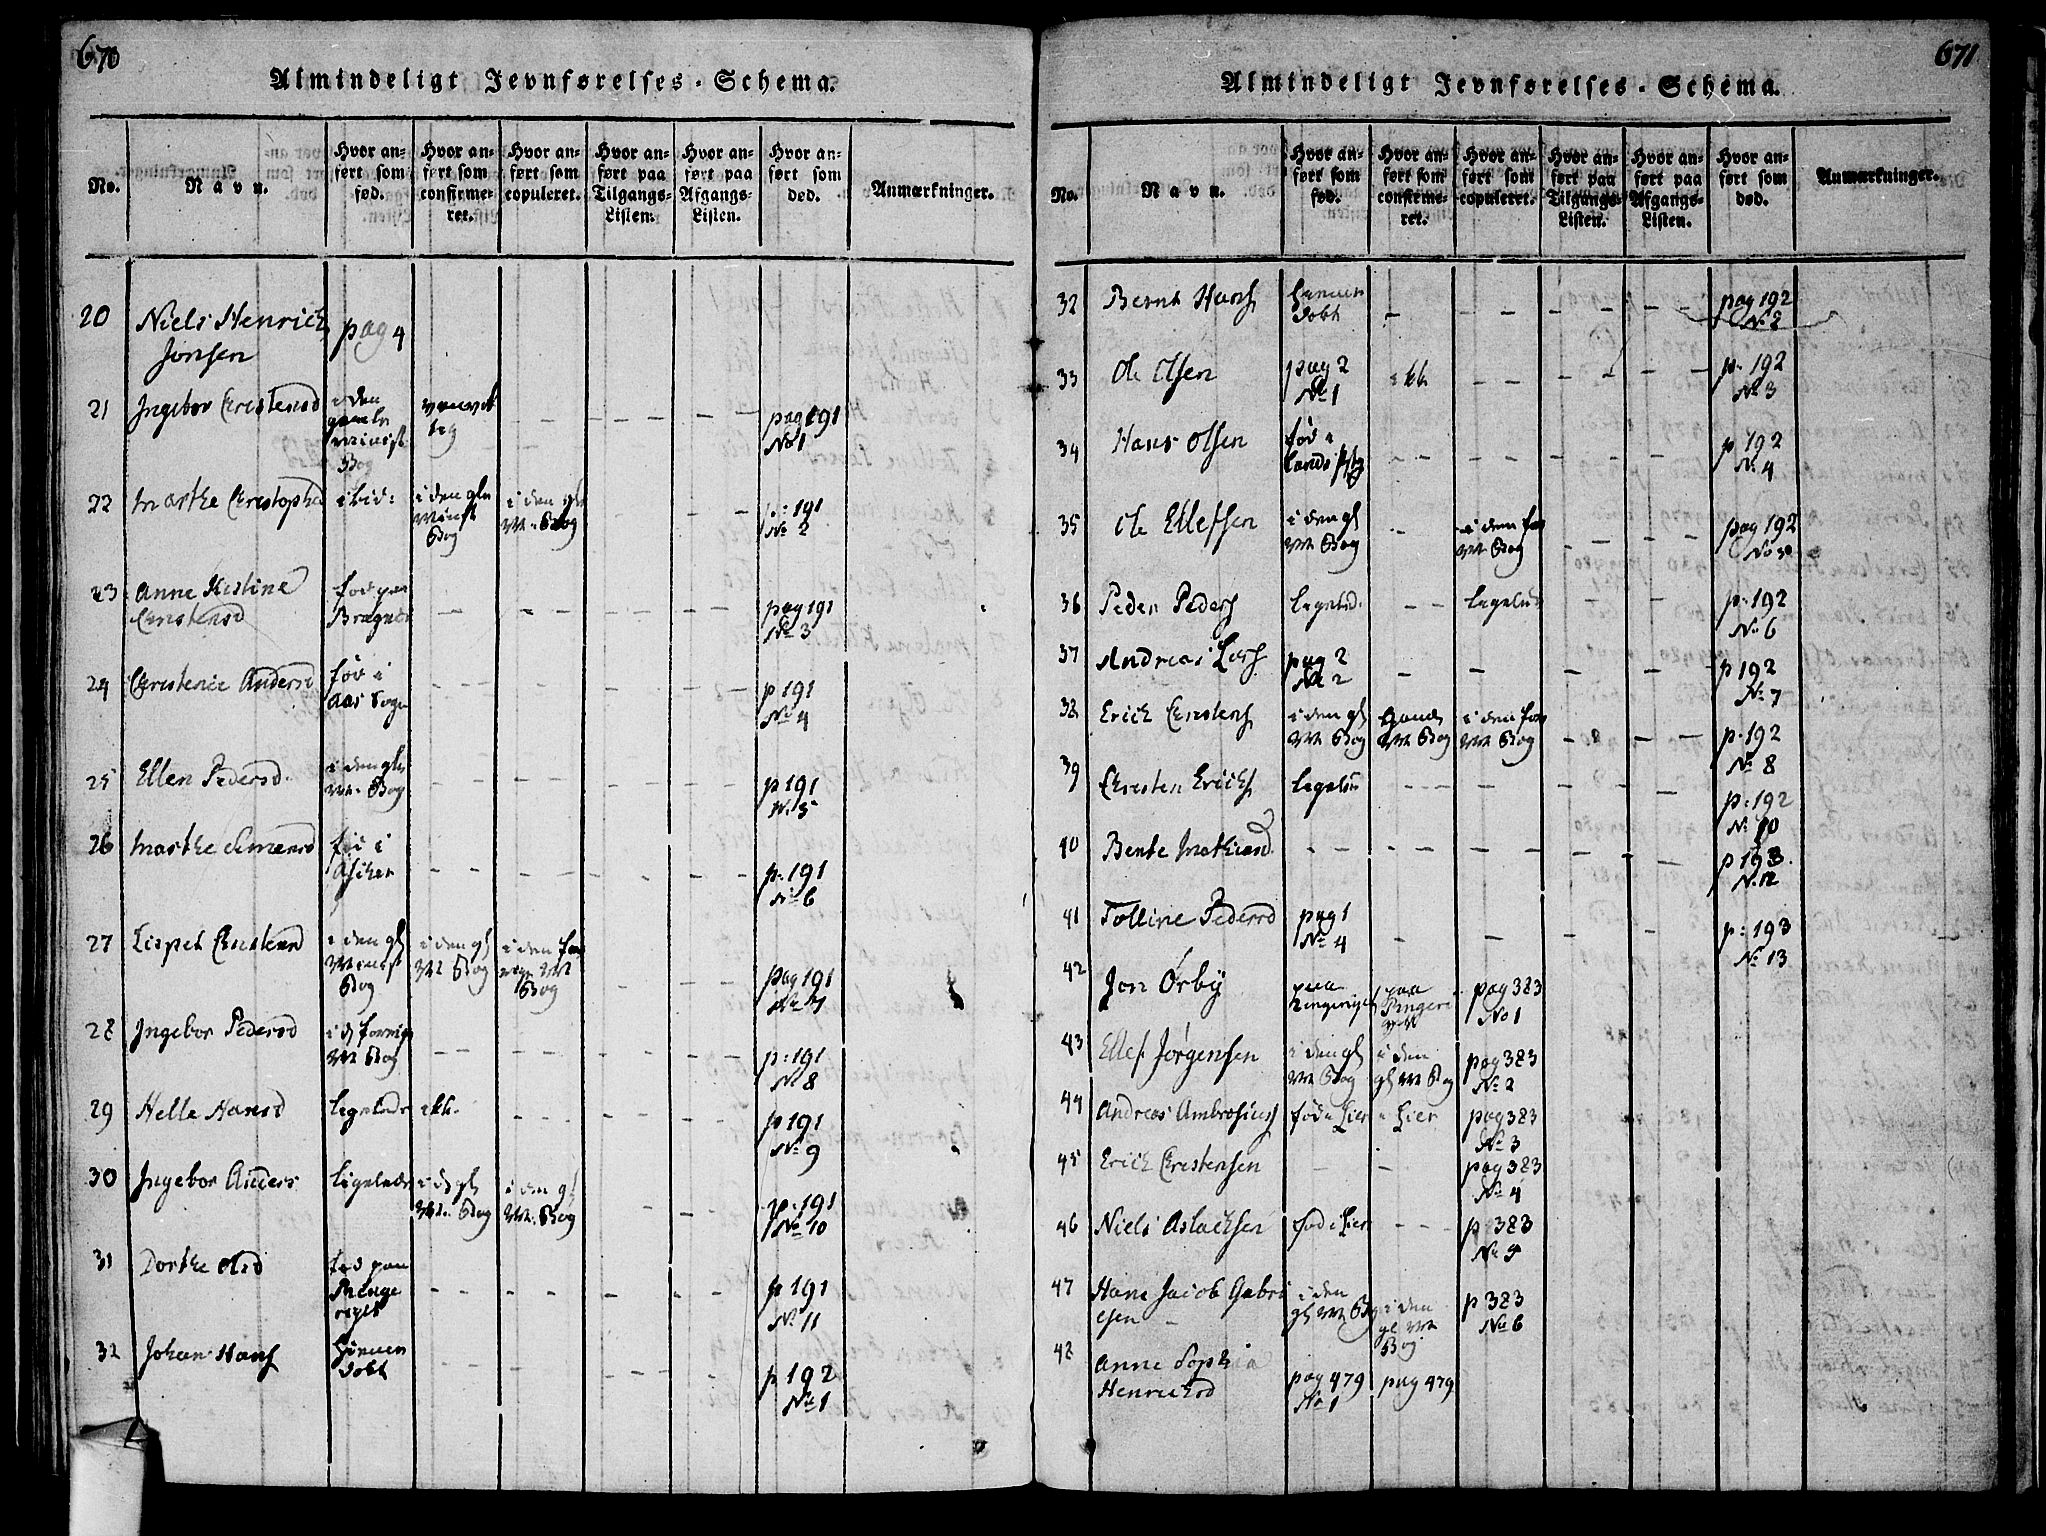 670
Almindeligt Jevnførelses-Schema.
No.
Navn.
Hvor an-
ført som
fød.
Hvor an-
ført som
confirme-
ret.
Hvor an-
ført som
copuleret.
Hvor an-
ført paa
Tilgangs-
Listen.
Hvor an-
ført paa
Afgangs-
Listen.
Hvor an-
ført som
død.
Anmærkninger.
20 Niels Henrich pag 4
Jonsen
21 Ingebor Christensd i den
gamle
Minist
Bog
pag 191
No 1
22 Marthe Christophd ibid: i den gle
Minist
Bog
i den gle
M. Bog
p: 191
No 2
23 Anne Kistine
Christensd
fød paa
Bragnes
pag 191
No 3
24 Christence Andersd fød i
Aas Sogn
p 191
No 4
25 Ellen Pedersd. i den gle
M. Bog
p 191
No 5
26 Marthe Simensd fød i
Asker
p. 191
No 6
27 Lispet Christensd i den gl
Minist
Bog
i den gl
M Bog
i den
M
Bog
pag 191
No 7
28 Ingebor Pedersd
M Bog
p: 191
No 8
29 Helle Hansd ligeledes
p 191
No 9
30 Ingebor Anders ligeledes i d gl
M. Bog
i den gl
M. Bog
p. 191
No 10
31 Dorthe Olsd fød paa
p 191
No 11
32 Johan Hans
dobt
p 192
No 1
671
Almindeligt Jevnførelses-Schema.
No.
Navn.
Hvor an-
ført som
fød.
Hvor an-
ført som
confirme-
ret.
Hvor an-
ført som
copuleret.
Hvor an-
ført paa
Tilgangs-
Listen.
Hvor an-
ført paa
Afgangs-
Listen.
Hvor an-
ført som
død.
Anmærkninger.
32 Bernt Hans
dobt
pag 192
No 2
33 Ole Olsen pag 2
No 1
p. 192
No 3
34 Hans Olsen fød i
p 192
No 4
35 Ole Ellefsen i den gl
M Bog
i den
M Bog
pag 192
36 Peder Peders ligeled. ligeled
p. 192
No 6
37 Andreas Lars pag 2
No 2
p 192
No 7
38 Erich Christens i den gl
M Bog
M Bog
i den
M Bog
p. 192
No 8
39 Christen Erichs
p: 192
No 10
40 Bente Mathiasd.
p 193
No 12
41 Tolline Pedersd pag 1
No 4
p: 193
No 13
42 Jon Ørby paa
Ringerige
paa
pag 383
No 1
43 Ellef Jørgensen i den gl
M Bog
i den
gl M Bog
pag 383
No 2
44 Andreas Ambrosius fød i Lier i Lier pag 383
No 3
45 Erich Christensen pag 383
No 4
46 Niels Aslachsen fød i Lier p 383
No 5
47 Hans Jacob Gabri
elsen
i den
gl M Bog
i den
gl M
Bog
p 383
No 6
48 Anne Sophia
Henrichsd
pag 479
No 1
pag 479